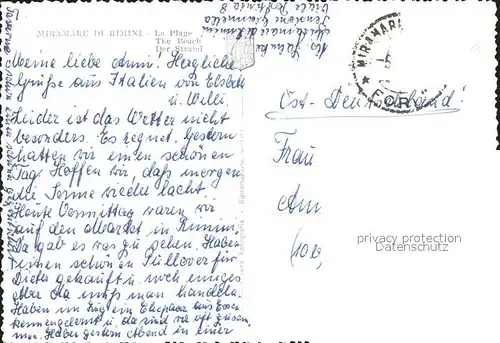 MIRAMARE DI RIMINI - La Plage
The Beach
Der Strand
Meine liebe Änni! Herzliche
Grüße aus Italien von Elsbeth
u. Willi.
Leider ist das Wetter nicht
besonders. Es regnet. Gestern
hatten wir einen schönen
Tag. Hoffen wir, daß morgen
die Sonne wieder lacht.
Heute Vormittag waren wir
auf den Markt in Rimini,
Da gab es was zu sehen. Haben
einen schönen Pullover für
Dieter gekauft u. noch einiges
aber da muß man handeln.
Haben im Zug ein Ehepaar aus Essen
kennengelernt u. da sind wir oft zusam-
men. Haben gestern Abend in einer
MIRAMARE
FOR
Ost-Deutschland!
Frau
Am
(10b)
privacy protection
Datenschutz